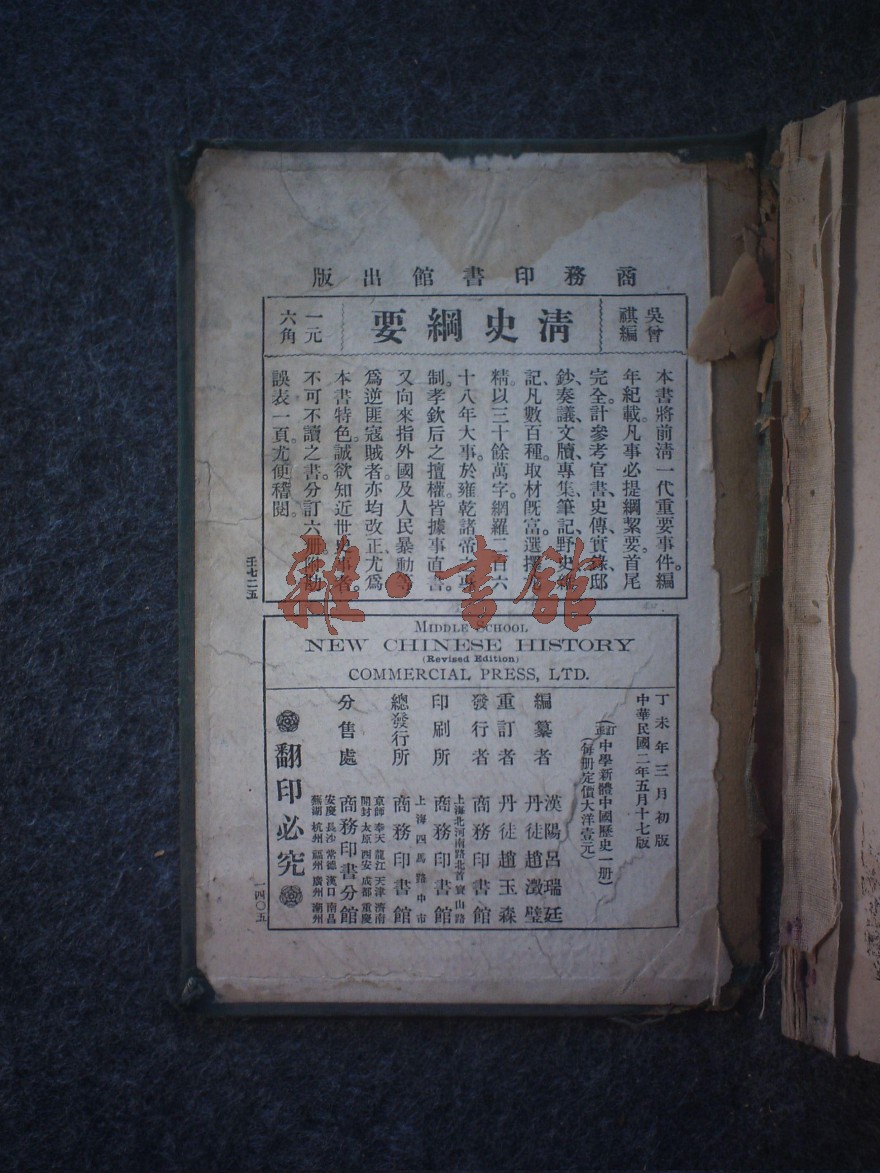 商務印書館出版
吳曾
祺編
清史綱要
一元
六角
本書將前清一代重要事件。編
年紀載。凡事必提綱絜要。首尾
完全。計參考官書、史傳、實錄、邸
鈔、奏議、文牘、專集、筆記、野史、
記、凡數百種。取材旣富。選擇
精。以三十餘萬字。網羅二百六
十八年大事。於雍乾諸帝
制。孝欽后之擅權。皆據事直書。
又向來指外國及人民暴動等
爲逆匪寇賊者。亦均改正。尤爲
本書特色。誠欲知近世史事者。
不可不讀之書。分訂六册。附勘
誤表一頁。尤便稽閱。
壬七二五
雜·書館
MIDDLE SCHOOL
NEW CHINESE HISTORY
(Revised Edition)
COMMERCIAL PRESS, LTD.
丁未年三月初版
中華民國二年五月十七版
(訂正中學新體中國歷史一册)
(每册定價大洋壹元)
編纂者 漢陽呂瑞廷
丹徒趙澂璧
重訂者 丹徒趙玉森
發行者 商務印書館
上海北河南路北首寶山路
印刷所 商務印書館
上海四馬路中市
總發行所 商務印書館
京師 奉天 龍江 天津 濟南
開封 太原 西安 成都 重慶
分售處 商務印書分館
安慶 長沙 常德 漢口 南昌
蕪湖 杭州 福州 廣州 潮州
翻印必究
一四〇五